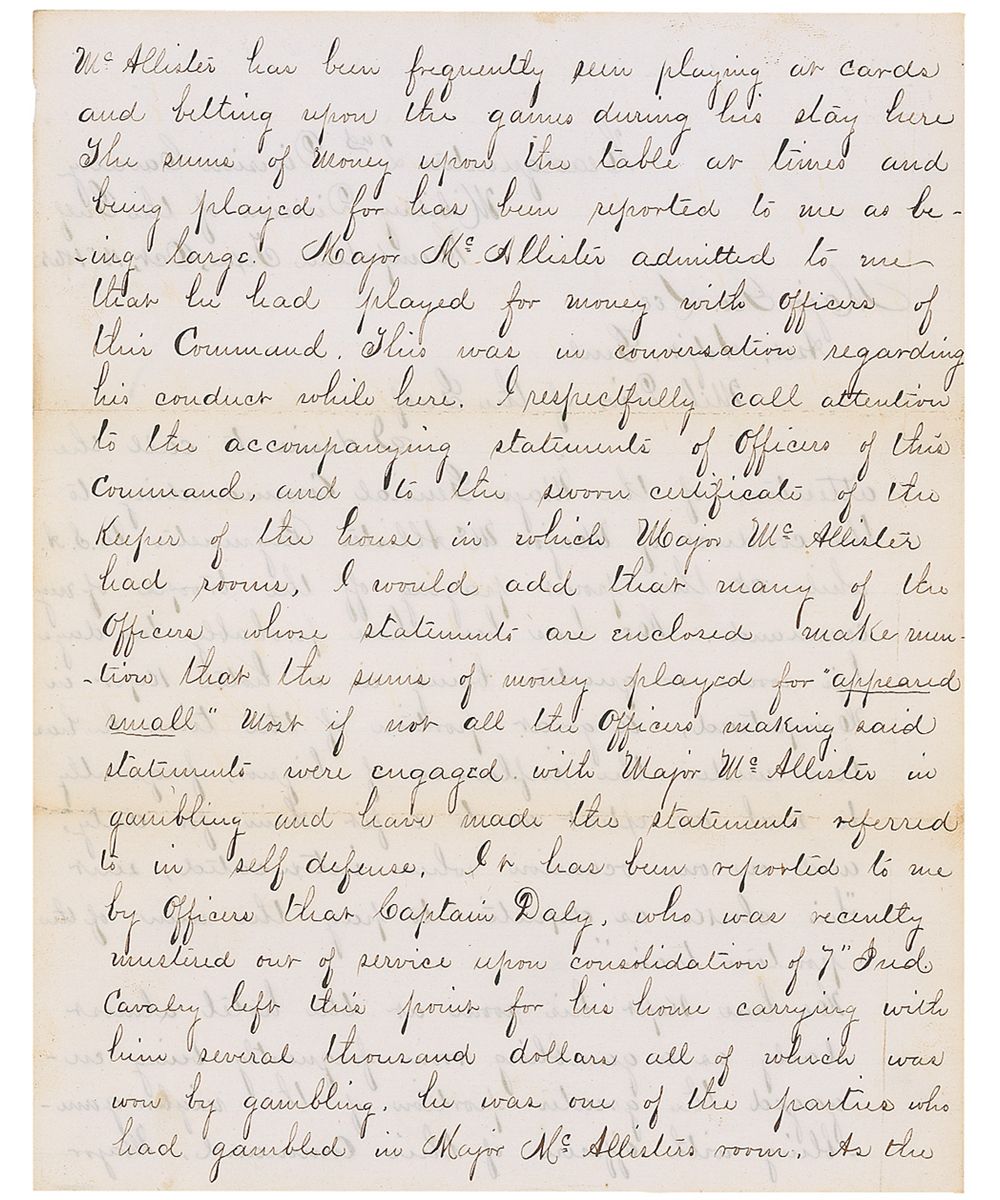 Mc Allister has been frequently seen playing at cards
and betting upon the games during his stay here
The sums of Money upon the table at times and
being played for has been reported to me as be-
-ing large. Major Mc Allister admitted to me
that he had played for money with Officers of
this Command. This was in conversation regarding
his conduct while here. I respectfully call attention
to the accompanying statements of Officers of this
Command, and to the sworn certificate of the
Keeper of the house in which Major Mc Allister
had rooms, I would add that many of the
Officers whose statements are enclosed make men-
-tion that the sums of money played for "appeared
small" Most if not all the Officers making said
statements were engaged with Major Mc Allister in
gambling and have made the statements referred
to in self defense, It has been reported to me
by Officers that Captain Daly, who was recently
mustered out of service upon consolidation of 7" Ind.
Cavalry left this point for his home carrying with
him several thousand dollars all of which was
won by gambling. he was one of the parties who
had gambled in Major Mc Allisters room. As the